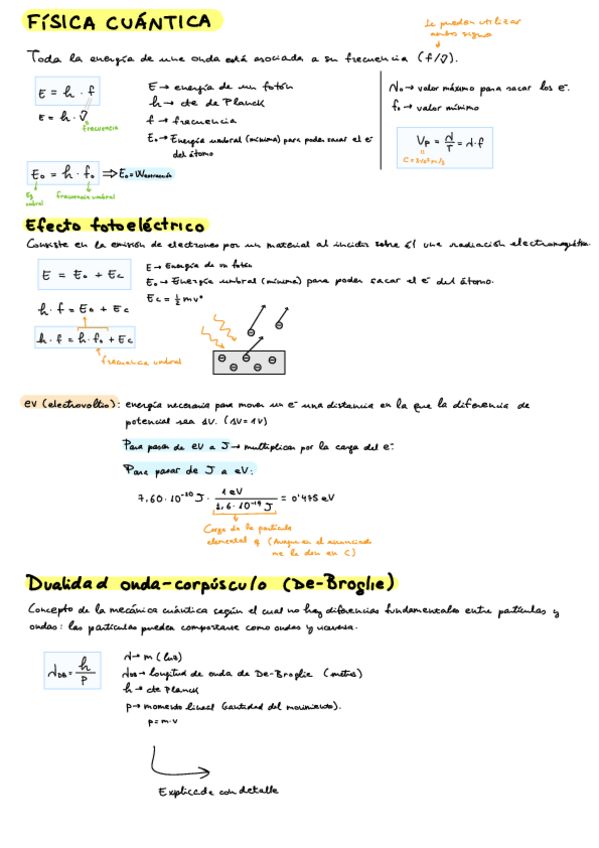 FÍSICA CUÁNTICA
Se pueden utilizar
ambos signo
Toda la energía de una onda está asociada a su frecuencia (f/ν).
E = h · f
E = h · ν
frecuencia
E → energía de un fotón
h → cte de Planck
f → frecuencia
E₀ → Energía umbral (mínima) para poder sacar el e⁻
del átomo
λ₀ → valor máximo para sacar los e⁻.
f₀ → valor mínimo
Vp = λ/T = λ·f
C = 3×10⁸ m/s
E₀ = h · f₀ ⇒ E₀ = Wextracción
Eg
umbral
frecuencia umbral
Efecto fotoeléctrico
Consiste en la emisión de electrones por un material al incidir sobre él una radiación electromagnética.
E = E₀ + Ec
h · f = E₀ + Ec
h · f = h · f₀ + Ec
frecuencia umbral
E → Energía de un fotón
E₀ → Energía umbral (mínima) para poder sacar el e⁻ del átomo.
Ec = ½ mv²
eV (electrovoltio): energía necesaria para mover un e⁻ una distancia en la que la diferencia de
potencial sea 1V. (ΔV = 1V)
Para pasar de eV a J → multiplicar por la carga del e⁻
Para pasar de J a eV:
7,60 · 10⁻²⁰ J · 1 eV / 1,6 · 10⁻¹⁹ J = 0'475 eV
Carga de la partícula
elemental q (Aunque en el enunciado
me la den en C)
Dualidad onda-corpúsculo (De-Broglie)
Concepto de la mecánica cuántica según el cual no hay diferencias fundamentales entre partículas y
ondas: las partículas pueden comportarse como ondas y viceversa.
λDB = h/p
λ → m (luz)
λDB → longitud de onda de De-Broglie (metros)
h → cte Planck
p → momento lineal (cantidad del movimiento).
p = m · v
Explicado con detalle